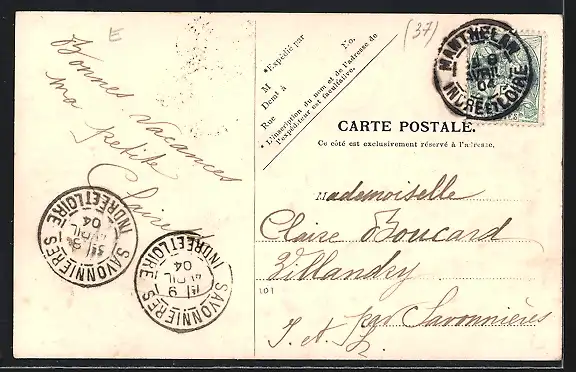 E
(37)
Bonnes vacances
ma petite
Claire
*Expédié par
No.
M
Demt à
Rue
*L'inscription du nom et de l'adresse de
l'expéditeur est facultative.
CARTE POSTALE.
Ce côté est exclusivement réservé à l'adresse.
Mademoiselle
Claire Boucard
Villandry
par Savonnières
I. et L.
101
MANTHELAN
AVRIL
04
INDRE ET LOIRE
SAVONNIERES
AVRIL
04
INDRE ET LOIRE
SAVONNIERES
9
AVRIL
04
INDRE ET LOIRE